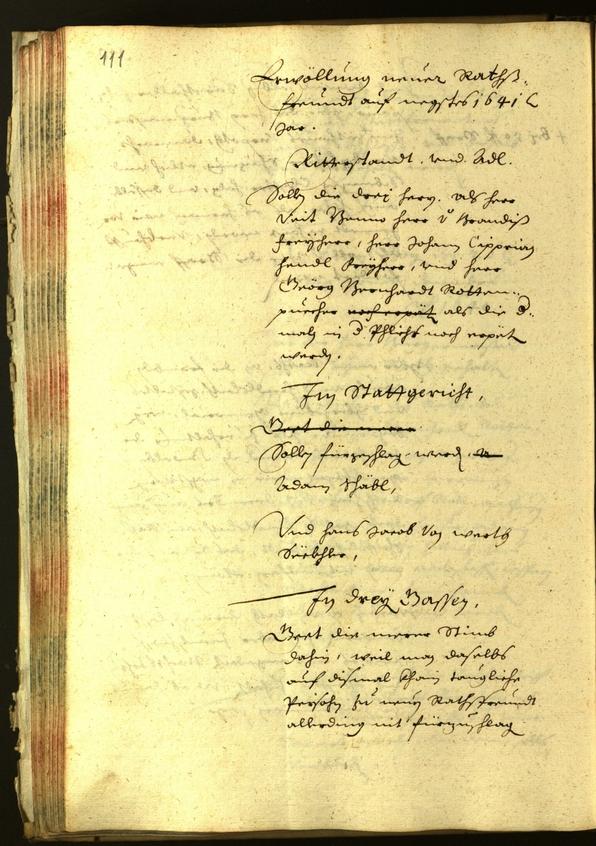 111
Erwöllung neuer Raths:
freundt auf negstes 1641
Jar.
Ritterstandt. und. Adl.
Sollen die drej herrn. als herr
Veit Benno herr v Brandiß
freyherr, herr Johann Ciprian
hendl freyherr, und herr
Georg Bernhardt Rotten:
puecher noch erpät als die d:
maln in d Phlicht noch erpät
werden.
Im Stattgericht,
Geet die merer
Sollen fürgeschlagen werden
Adam Schäbl,
Und hans Jacob von werth
In drey Gassen,
Geet die merer Stimb
dahin, weil man daselbs
auf dismal khain taugliche
Persohn zu neuen Rathsfreundt
allerding nit fürzuschlagen